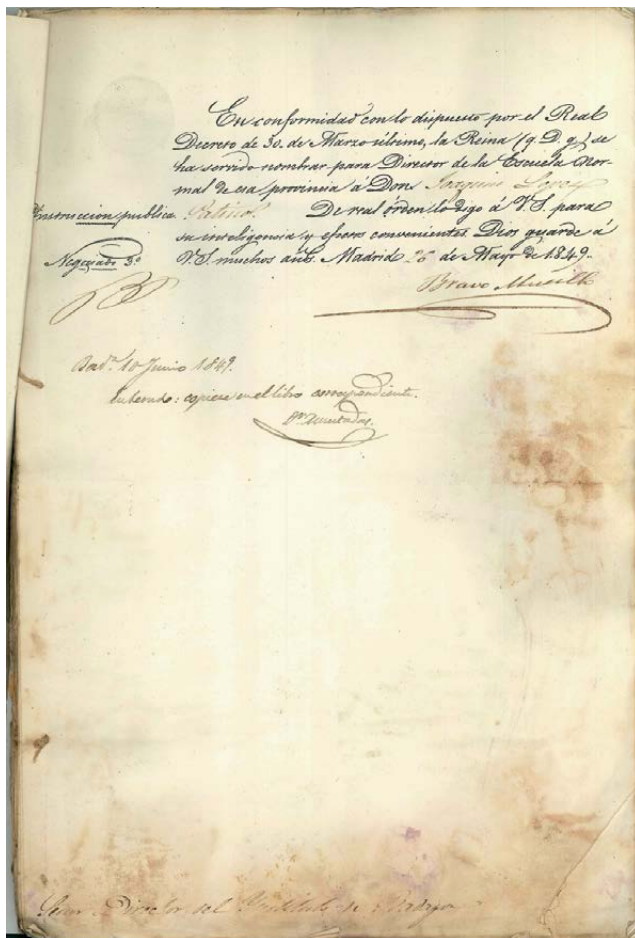 En conformidad con lo dispuesto por el Real
Decreto de 30. de Marzo último, la Reina (q. D. g.) se
ha servido nombrar para Director de la Escuela Nor-
mal de esa provincia á Don Joaquin Lopez
Instruccion publica. Patiño. De real órden lo digo á V.S. para
su inteligencia y efectos convenientes. Dios guarde á
Negociado 3º V.S. muchos años. Madrid 26 de Mayo de 1849.
Bravo Murillo
10 Junio 1849.
Enterado: copiese en el libro correspondiente.
Señor Director del Instituto de Badajoz